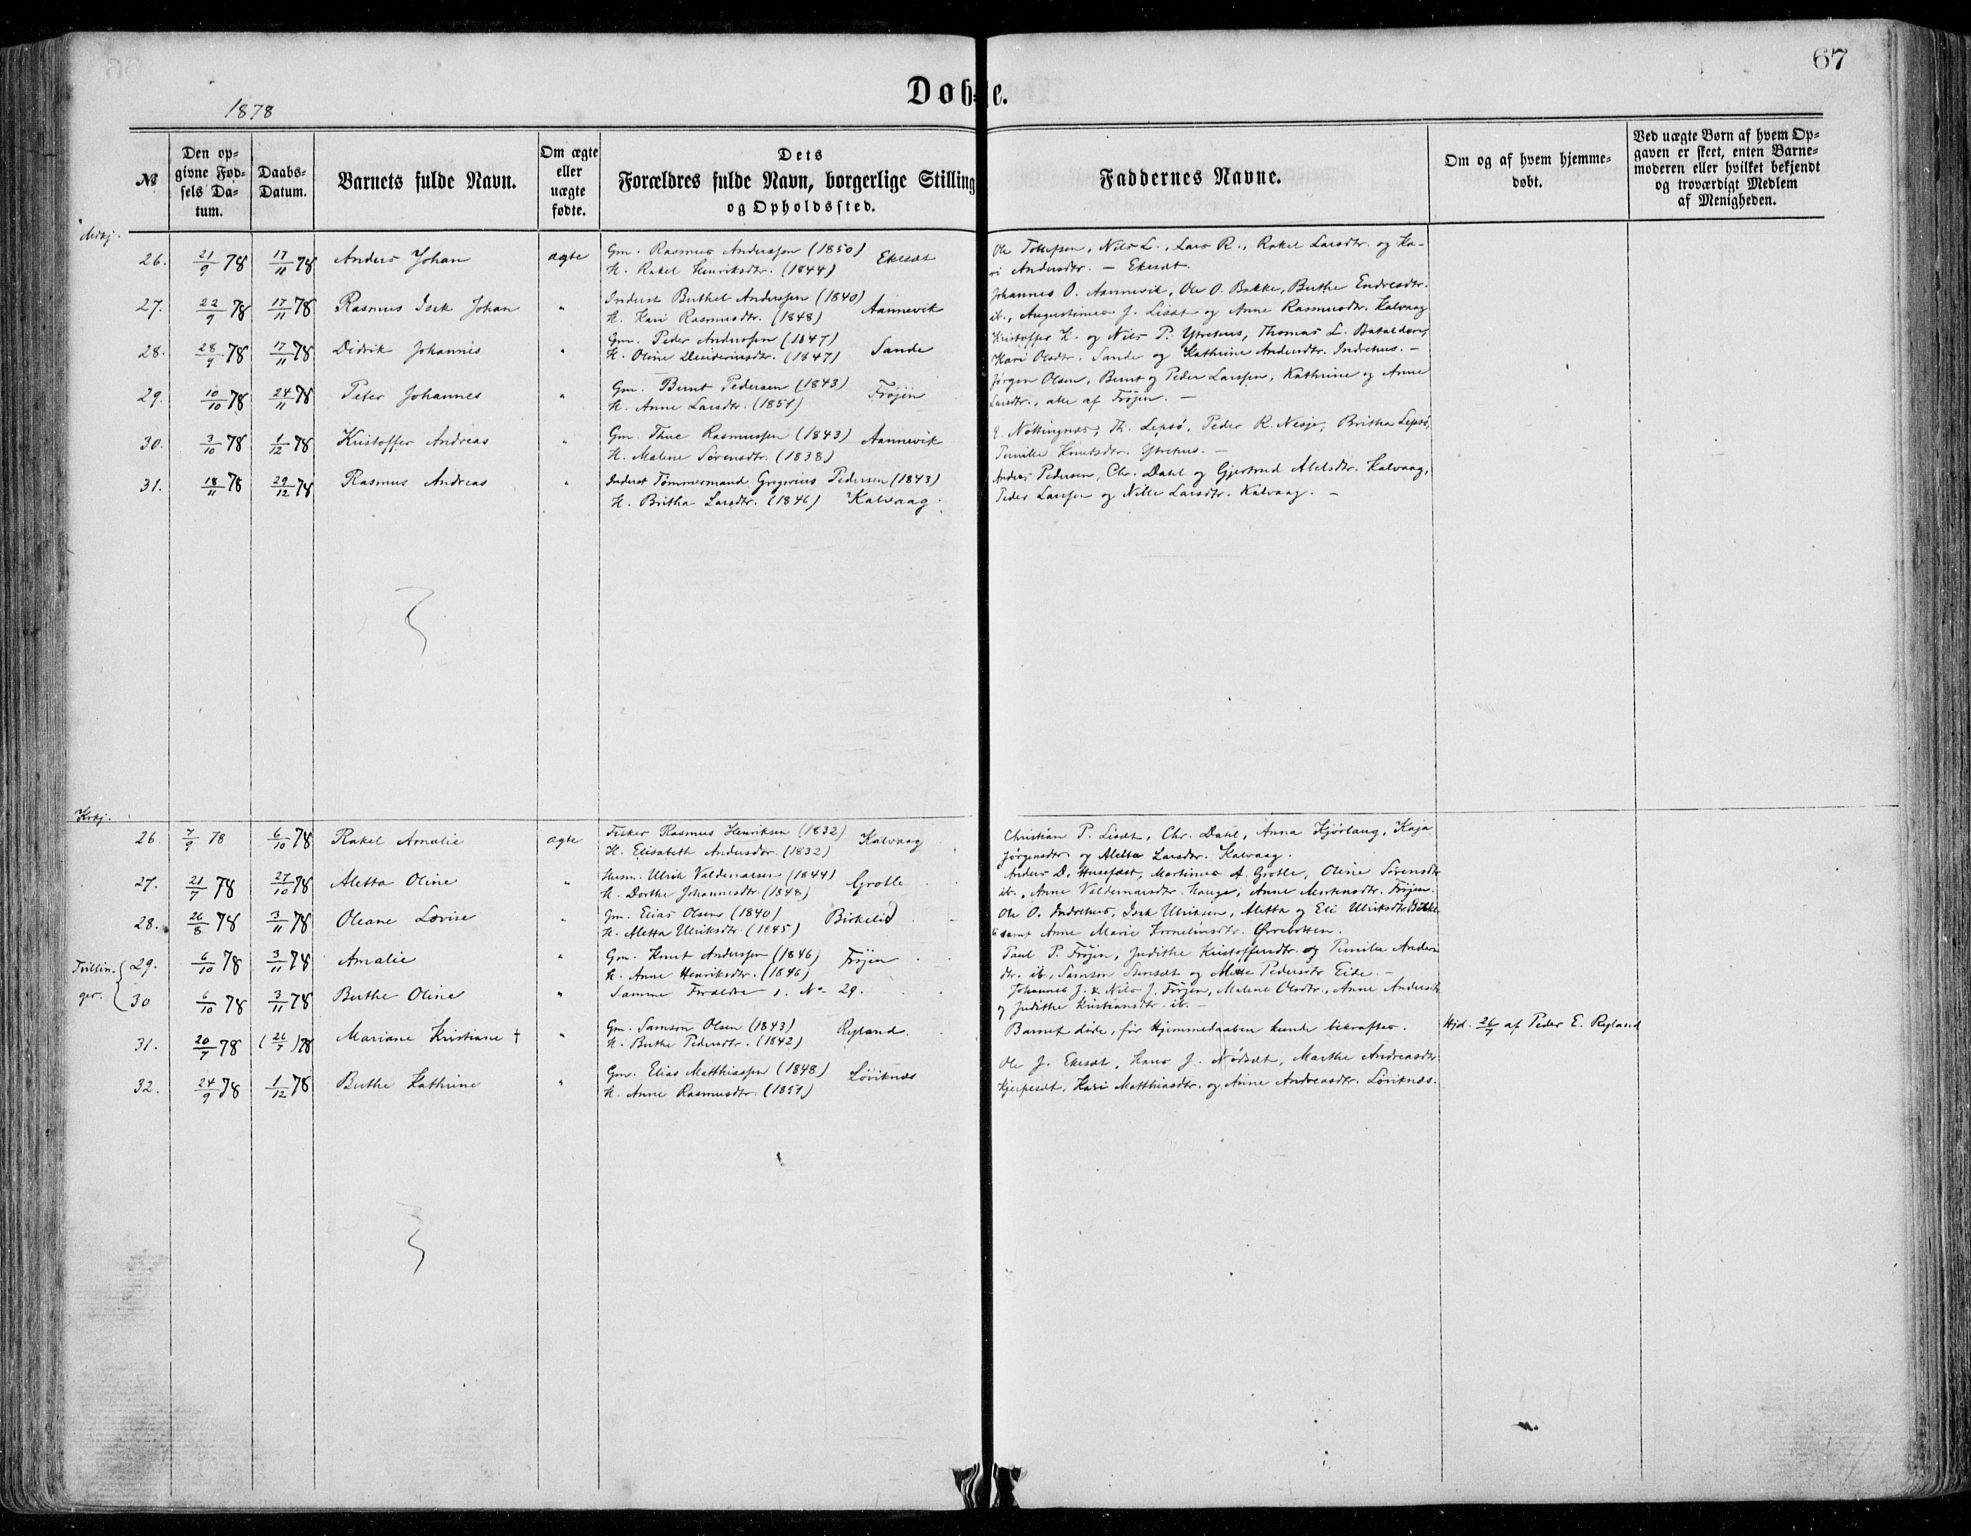 67
Døbte.
1878
No
Den opgivne Fødsels Datum.
Daabs-Datum.
Barnets fulde Navn.
Om ægte eller uægte fødte.
Dets Forældres fulde Navn, borgerlige Stilling og Opholdssted.
Faddernes Navne.
Om og af hvem hjemmedøbt.
Ved uægte Børn af hvem Opgaven er skeet, enten Barnemoderen eller hvilket bekjendt og troværdigt Medlem af Menigheden.
26. 21/9 78 17/11 78 Anders Johan ægte Gm. Rasmus Anderssen (1850) Ekesæt
H. Rakel Henriksdtr. (1844)
Ole Tollefsen, Nils L., Lars R., Rakel Larsdtr. og Ka-
ri Andersdtr. — Ekesæt.
27. 22/9 78 17/11 78 Rasmus Isek Johan " Inderst Berthel Anderssen (1840) Aannevik
H. Kari Rasmusdtr. (1848)
Johannes O. Aannevik, Ole O. Bakke, Berthe Endresdtr.
ib., Augustinus J. Lisæt og Anne Rasmusdtr. Kalvaag
28. 28/9 78 17/11 78 Didrik Johannes " Gm. Peder Anderssen (1847) Sande
H. Oline (1847)
Kristoffer K. og Nils P. Ytrehus, Thomas L. Batalden,
Kari Olsdtr. Sande og Kathrine Andersdtr. Indrehus. —
29. 10/10 78 24/11 78 Peter Johannes " Gm. Bernt Pedersen (1843) Frøjen
H. Anne Larsdtr. (1851)
Jørgen Olsen, Bernt og Peder Larssen, Kathrine og Anne
Larsdtr., alle af Frøjen. —
30. 3/10 78 1/12 78 Kristoffer Andreas " Gm. Thue Rasmussen (1843) Aannevik
H. Malene Sørensdtr. (1838)
E. Nøttingnæs, Th. Lepsø, Peder R. Nesje, Britha Lepsø,
Pernille Knutsdtr. Ytrehus. —
31. 18/11 78 29/12 78 Rasmus Andreas " Inderst Tømmermand Gregorius Pedersen (1843)
H. Britha Larsdtr. (1846) Kalvaag.
Anders Pedersen, Chr. Dahl og Gjertrud Abelsdtr. Kalvaag,
Peder Larssen og Nille Larsdtr. Kalvaag. —
26. 7/9 78 6/10 78 Rakel Amalie ægte Fisker Rasmus Henriksen (1832) Kalvaag
H. Elisabeth Andersdtr. (1832)
Christian P. Lisæt, Chr. Dahl, Anna Hjørlaug, Kaja
Jørgensdtr. og Aletta Larsdtr. Kalvaag.
27. 21/7 78 27/10 78 Aletta Oline " Husm. Ulrik Valdemarsen (1844) Grotle
H. Dorthe Johannesdtr. (1848)
Anders D. Husefæst, Martinus A. Grotle, Oline Sørensdtr.
ib., Anne Valdemarsdtr. Hauge, Anne Mortensdtr. Frøjen.
28. 26/8 78 3/11 78 Oleane Lovise " Gm. Elias Olsen (1840) Birkelid
H. Aletta Ulriksdtr. (1845)
Ole O. Indrehus, Isek Ulriksen, Aletta og Eli Ulriksdtr.
samt Anne Marie Kornelinsdtr. Øvrebotten.
Tvillin-
ger.
29. 6/10 78 3/11 78 Amalie " Gm. Knut Anderssen (1846) Frøjen
H. Anne Henriksdtr. (1846)
Paul P. Frøjen, Judithe Kristoffersdtr. og Pernille Anders-
dtr. ib., Samson Sunsæt og Mette Pedersdtr. Eide. —
30 6/10 78 3/11 78 Berthe Oline " Samme Forældre s. No 29.
Johannes J. & Nils J. Frøjen, Malene Olsdtr., Anne Andersdtr.
og Judithe Kristiansdtr. ib. —
31. 20/7 78 (26/7) 78 Mariane Kristiane † " Gm. Samson Olsen (1843) Ryland
H. Berthe Pedersdtr. (1842)
Barnet døde, før Hjemmedaaben kunde bekræftes.
Hjd. 26/7 af Peder E. Ryland
32. 24/9 78 1/12 78 Berthe Kathrine " Gm. Elias Matthiassen (1848) Løviknæs
H. Anne Rasmusdtr. (1851)
Ole J. Ekesæt, Hans J. Nødsæt, Marthe Andreasdtr.
Hjelpesæt, Kari Matthiasdtr. og Anne Andreasdtr. Løviknæs.